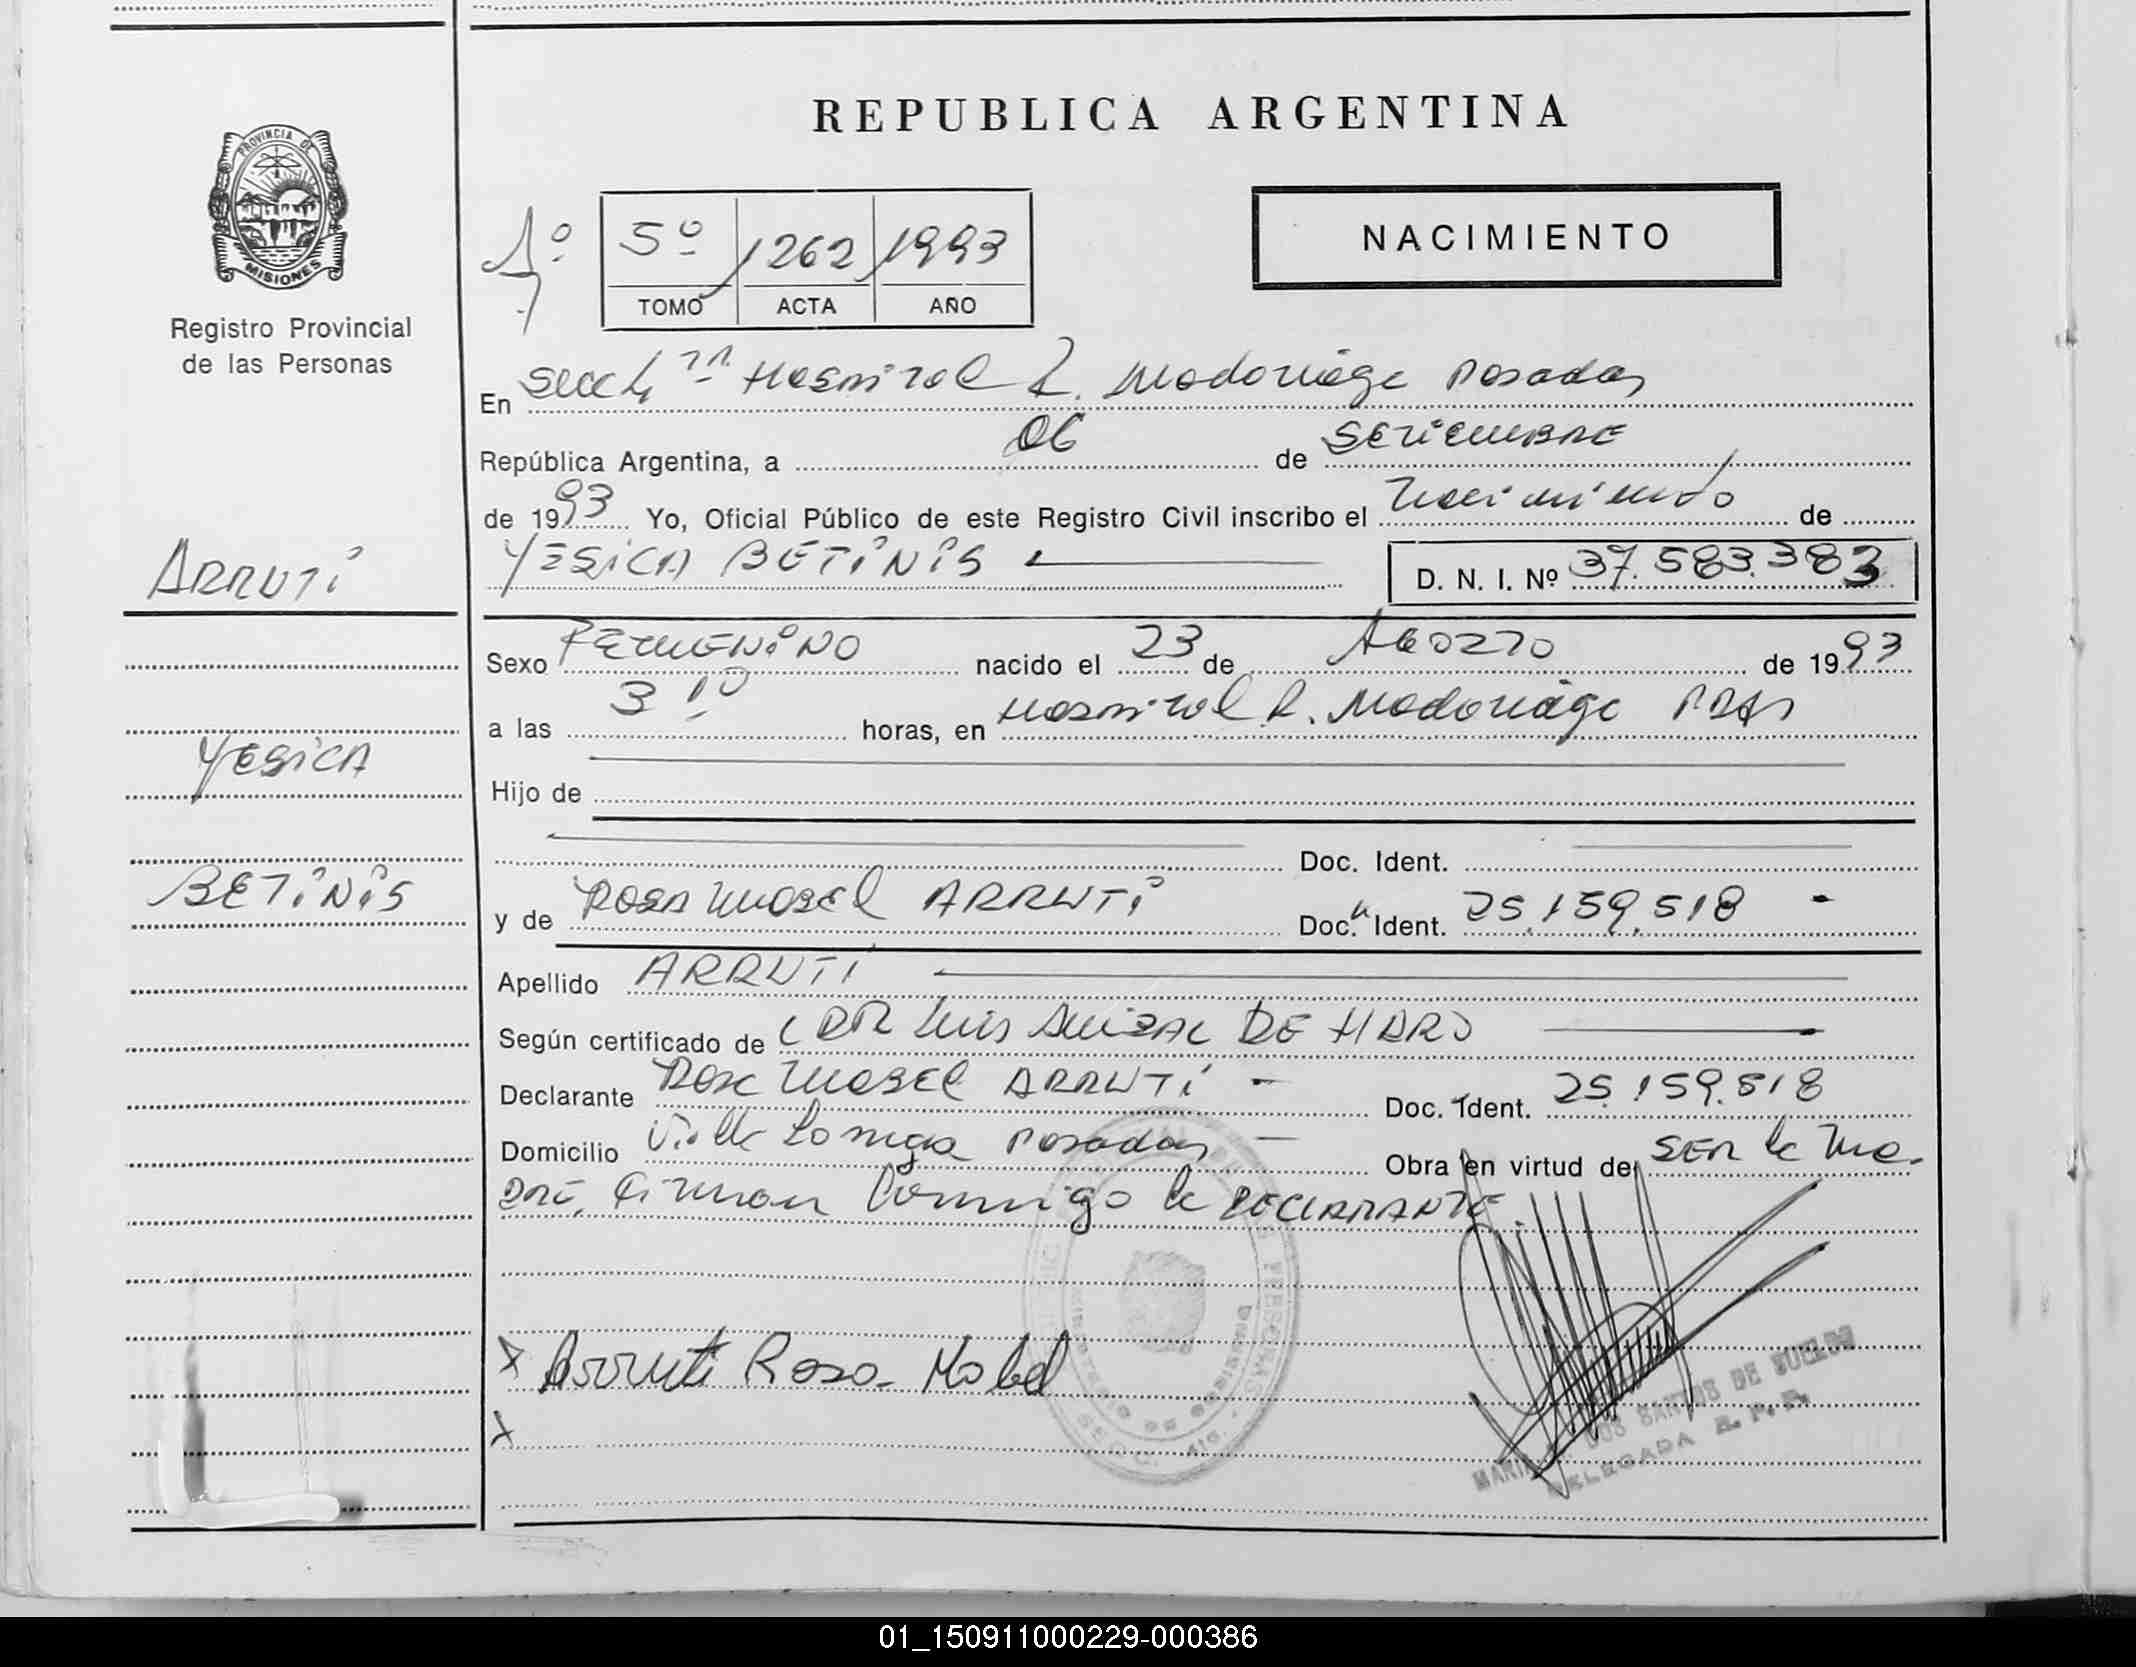 REPUBLICA ARGENTINA
PROVINCIA DE
MISIONES
Registro Provincial
de las Personas
NACIMIENTO
5º 1262 1993
TOMO ACTA AÑO
En Secc Hospital R. Madariaga Posadas
República Argentina, a 06 de SETIEMBRE
de 1993 Yo, Oficial Público de este Registro Civil inscribo el Nacimiento de
YESICA BETINIS D. N. I. Nº 37.583.383
ARRUTI
YESICA
BETINIS
Sexo FEMENINO nacido el 23 de AGOSTO de 1993
a las 3 10 horas, en Hospital R. Madariaga PDAS
Hijo de
Doc. Ident.
y de ROSA MABEL ARRUTI Doc. Ident. 25.159.518 -
Apellido ARRUTI
Según certificado de DR LUIS ANIBAL DE HARO
Declarante ROSA MABEL ARRUTI - Doc. Ident. 25.159.518
Domicilio Villa Posadas - Obra en virtud de SER la MA-
DRE. Firman Conmigo la DECLARANTE.
X Arruti Rosa Mabel
X
DOS SANTOS DE
DELEGADA R. P. P.
01_150911000229-000386